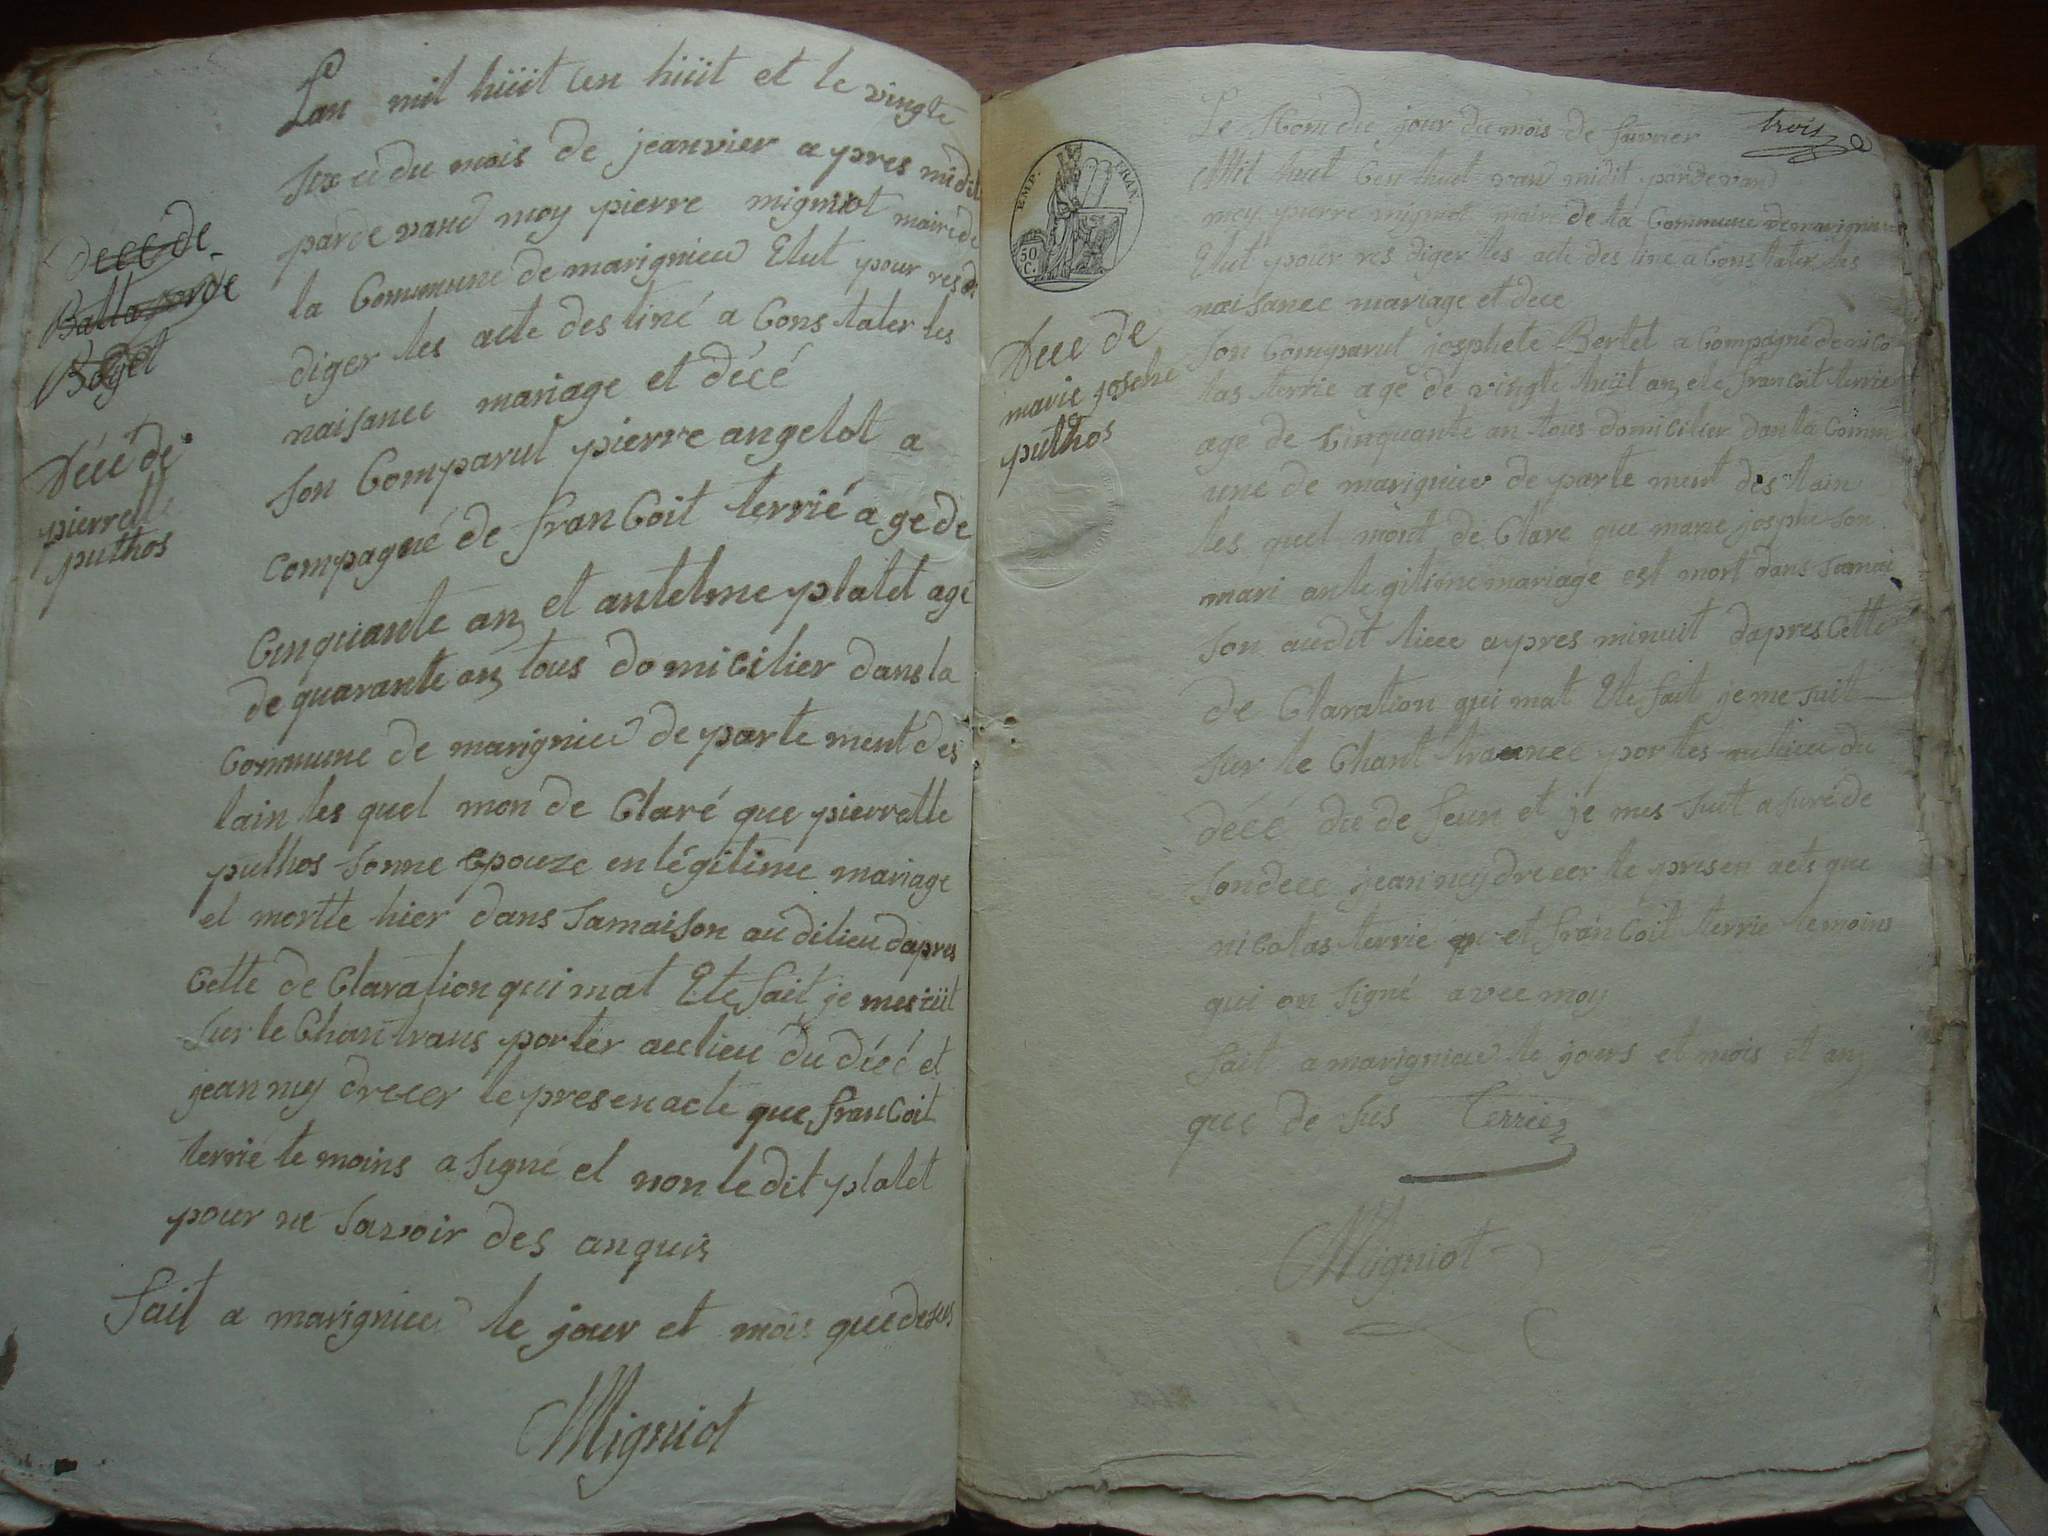 Lan mil hüit Cen hüit et le vingte
du mois de jeanvier a pres midit
parde vand moy pierre migniot maire de
la Commune de marignieu Elut pour res di
diger les acte des tiné a Cons tater les
naisance mariage et décé
son Comparut pierre angelot a
compagné de franCoit terrié a ge de
Cinquante an et antelme platet agé
de quarante an tous domicilier dans la
Commune de marignieu de parte ment des
lain les quel mon de Claré que pierrette
puthos sonne epouze en légitime mariage
et mortte hier dans samaison au dilieu dapres
Cette de Claration qui mat Ete fait je me süit
sur le Chan trans porter au lieu du décé et
jean mij drecer le presen acte que franCoit
terrié te moins a signé et non le dit platet
pour ne savoir des anquis
fait a marignieu le jour et mois que desus
Migniot
decé de
Balta
Boget
Décé de
pierrette
puthos
trois
EMP. FRAN.
50 C.
Dece de
marie josephe
puthos
Le jour du mois de
Mil huit Cen huit vand midit pardevand
moy pierre migniot maire de la Commune de marignieu
Elut pour res diger les acte des tiné a Cons tater les
naisance mariage et dece
son Comparut josphete Bertet a Compagné de nico
las terrie age de vingte hüit an et francoit terrie
age de Cinquante an tous domicilier dan la Comm
une de marignieu de parte ment des lain
les quel mont de Claré que marie josphe son
mari an le gitime mariage est mort dans samai
son audit lieee apres minuit dapres Cette
de Claration qui mat Ete fait je me suit
sur le Chant porter au lieu du
décé du de feun et je mes suit asuré de
sondece jean mij drecer le presen acte que
nicolas terrie et franCoit terrie temoins
qui on signé avec moy
fait a marignieu le jours et mois et an
que de sus Terrier
Migniot